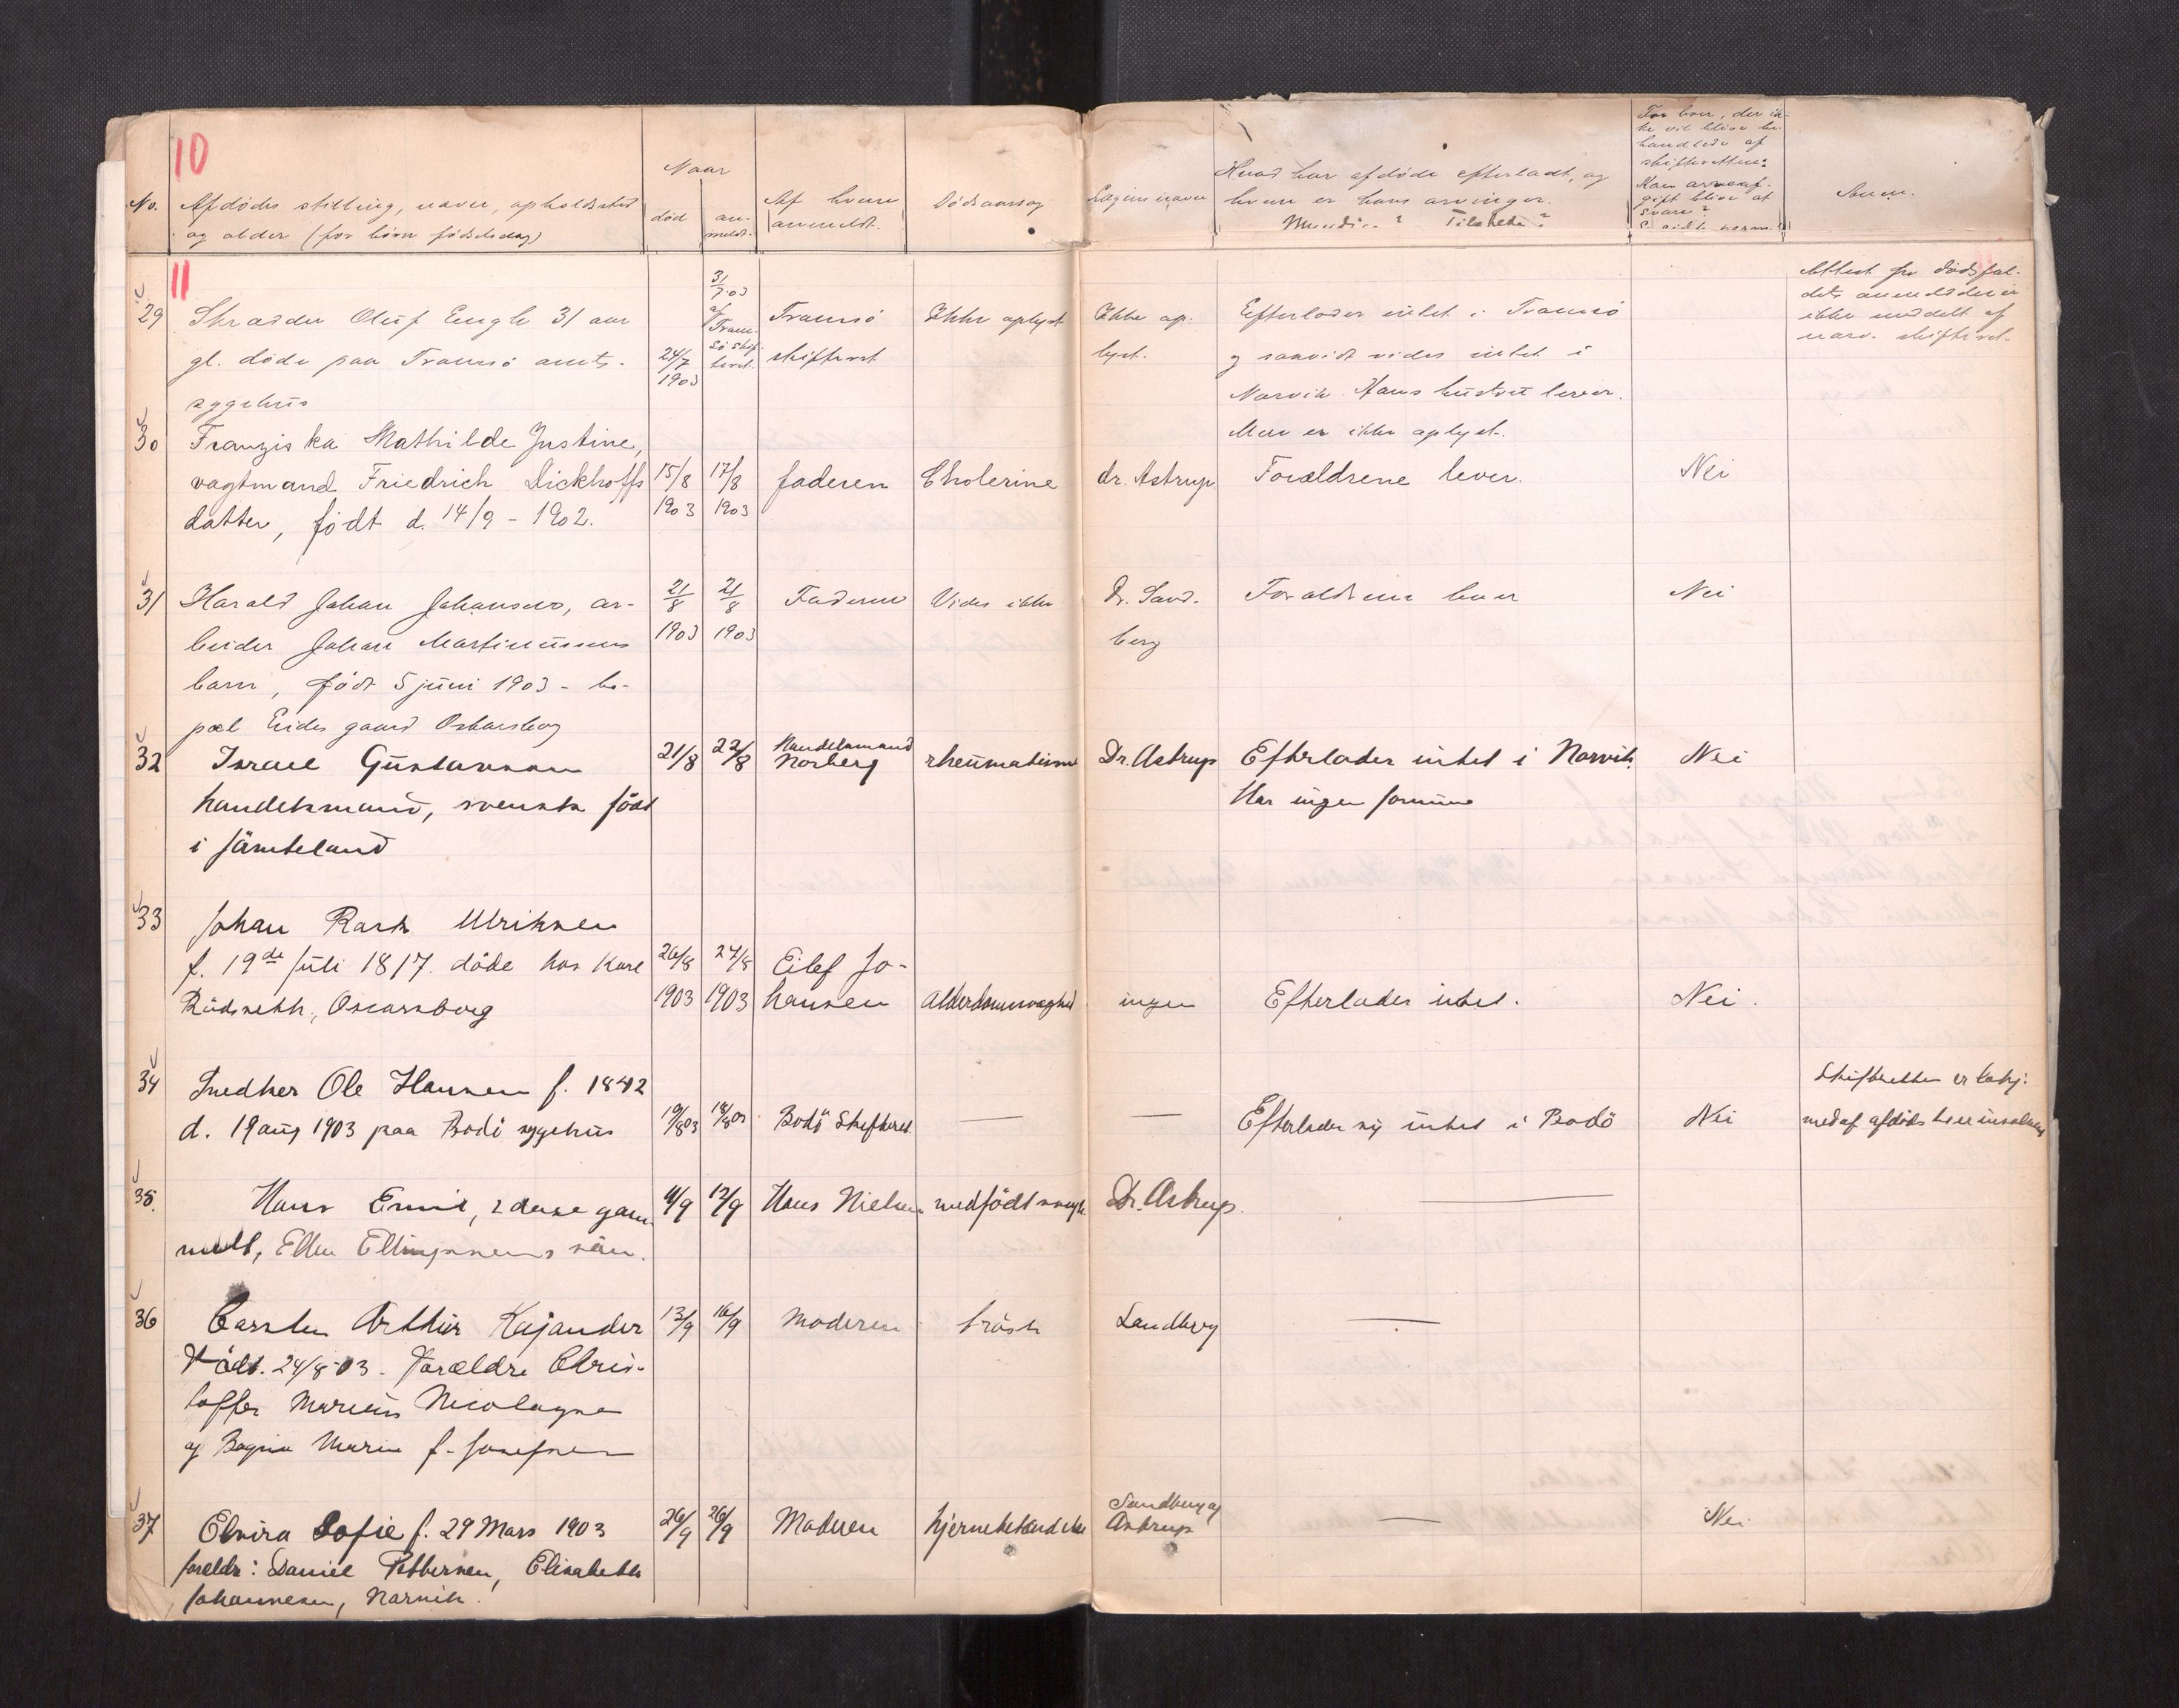 10
No.
Afdødes stilling, navn, opholdssted
og alder (for børn fødselsdag)
Naar
død
an-
meldt.
Af hvem
anmeldt.
Dødsaarsag
Lægens navn
Hvad har afdøde efterladt, og
hvem er hans arvinger.
Myndige? Tilstede?
For boer, der ik-
ke vil blive be-
handlede af
skifteretten:
Kan arveaf-
gift blive at
svare?
Anm.
11
29
Skrædder Oluf Engh 31 aar
gl. døde paa Tromsø amts-
sygehus
24/7
1903
3/7 03
af
Trom-
sø skif-
teret.
Tromsø
skifteret
Ikke oplyst
Ikke op-
lyst.
Efterlader intet i Tromsø
og saavidt vides intet i
Narvik. Hans hustru lever.
Mere er ikke oplyst.
Attest for dødsfal-
dets anmeldelse er
ikke meddelt af
narv. skifteret.
30
Franziska Mathilde Justine,
vagtmand Friedrich Dickhoffs
datter, født d. 14/9 - 1902.
15/8
1903
17/8
1903
faderen
Cholerine
dr. Astrup.
Forældrene lever.
Nei
31
Harald Johan Johansen, ar-
beider Johan Martinussens
barn, født 5 juni 1903 - bo-
pæl Eides gaard Oskarsborg
21/8
1903
21/8
1903
Faderen
Vides ikke
Dr. Sand-
berg
Forældrene lever
Nei
32
Israel Gustavsson
handelsmand, svensk født
i Jämteland
21/8
22/8
Handelsmand
Norberg
rheumatisme
Dr. Astrup
Efterlader intet i Narvik.
Har ingen formue
Nei
33
Johan Rask Ulriksen
f. 19de juli 1817. døde hos Karl
Rudsneth., Oscarsborg
26/8
1903
27/8
1903
Eilef Jo-
hansen
Alderdomssvaghed
ingen
Efterlader intet.
Nei.
34
Snedker Ole Hansen f. 1842
d. 19 aug 1903 paa Bodö sygehus
19/8 03
18/8 03
Bodö Skifteret.
—
—
Efterlader sig intet i Bodö
Nei
Skifteretten er bekj.
med af afdøds bo er insolvent
35.
Hans Emil, 2 dage gam
melt, Ellen Ellingsens sön.
11/9
12/9
Hans Nielsen
medfödt svagh.
Dr. Astrup.
—
36
Carsten Arthur Kajander
Född. 24/8 03. Forældre Chris-
toffer Marius Nicolaysen
og Ragna Marie f. Josefsen
13/9
16/9
Moderen
bråsk
Sandberg
—
37
Elvira Sofie f. 29 Mars 1903
foreldr: Daniel Pettersen, Elisabeth
Johannesen, Narvik.
26/9
26/9
Moderen
hjernebetændelse
Sandberg og
Astrup
—
Nei